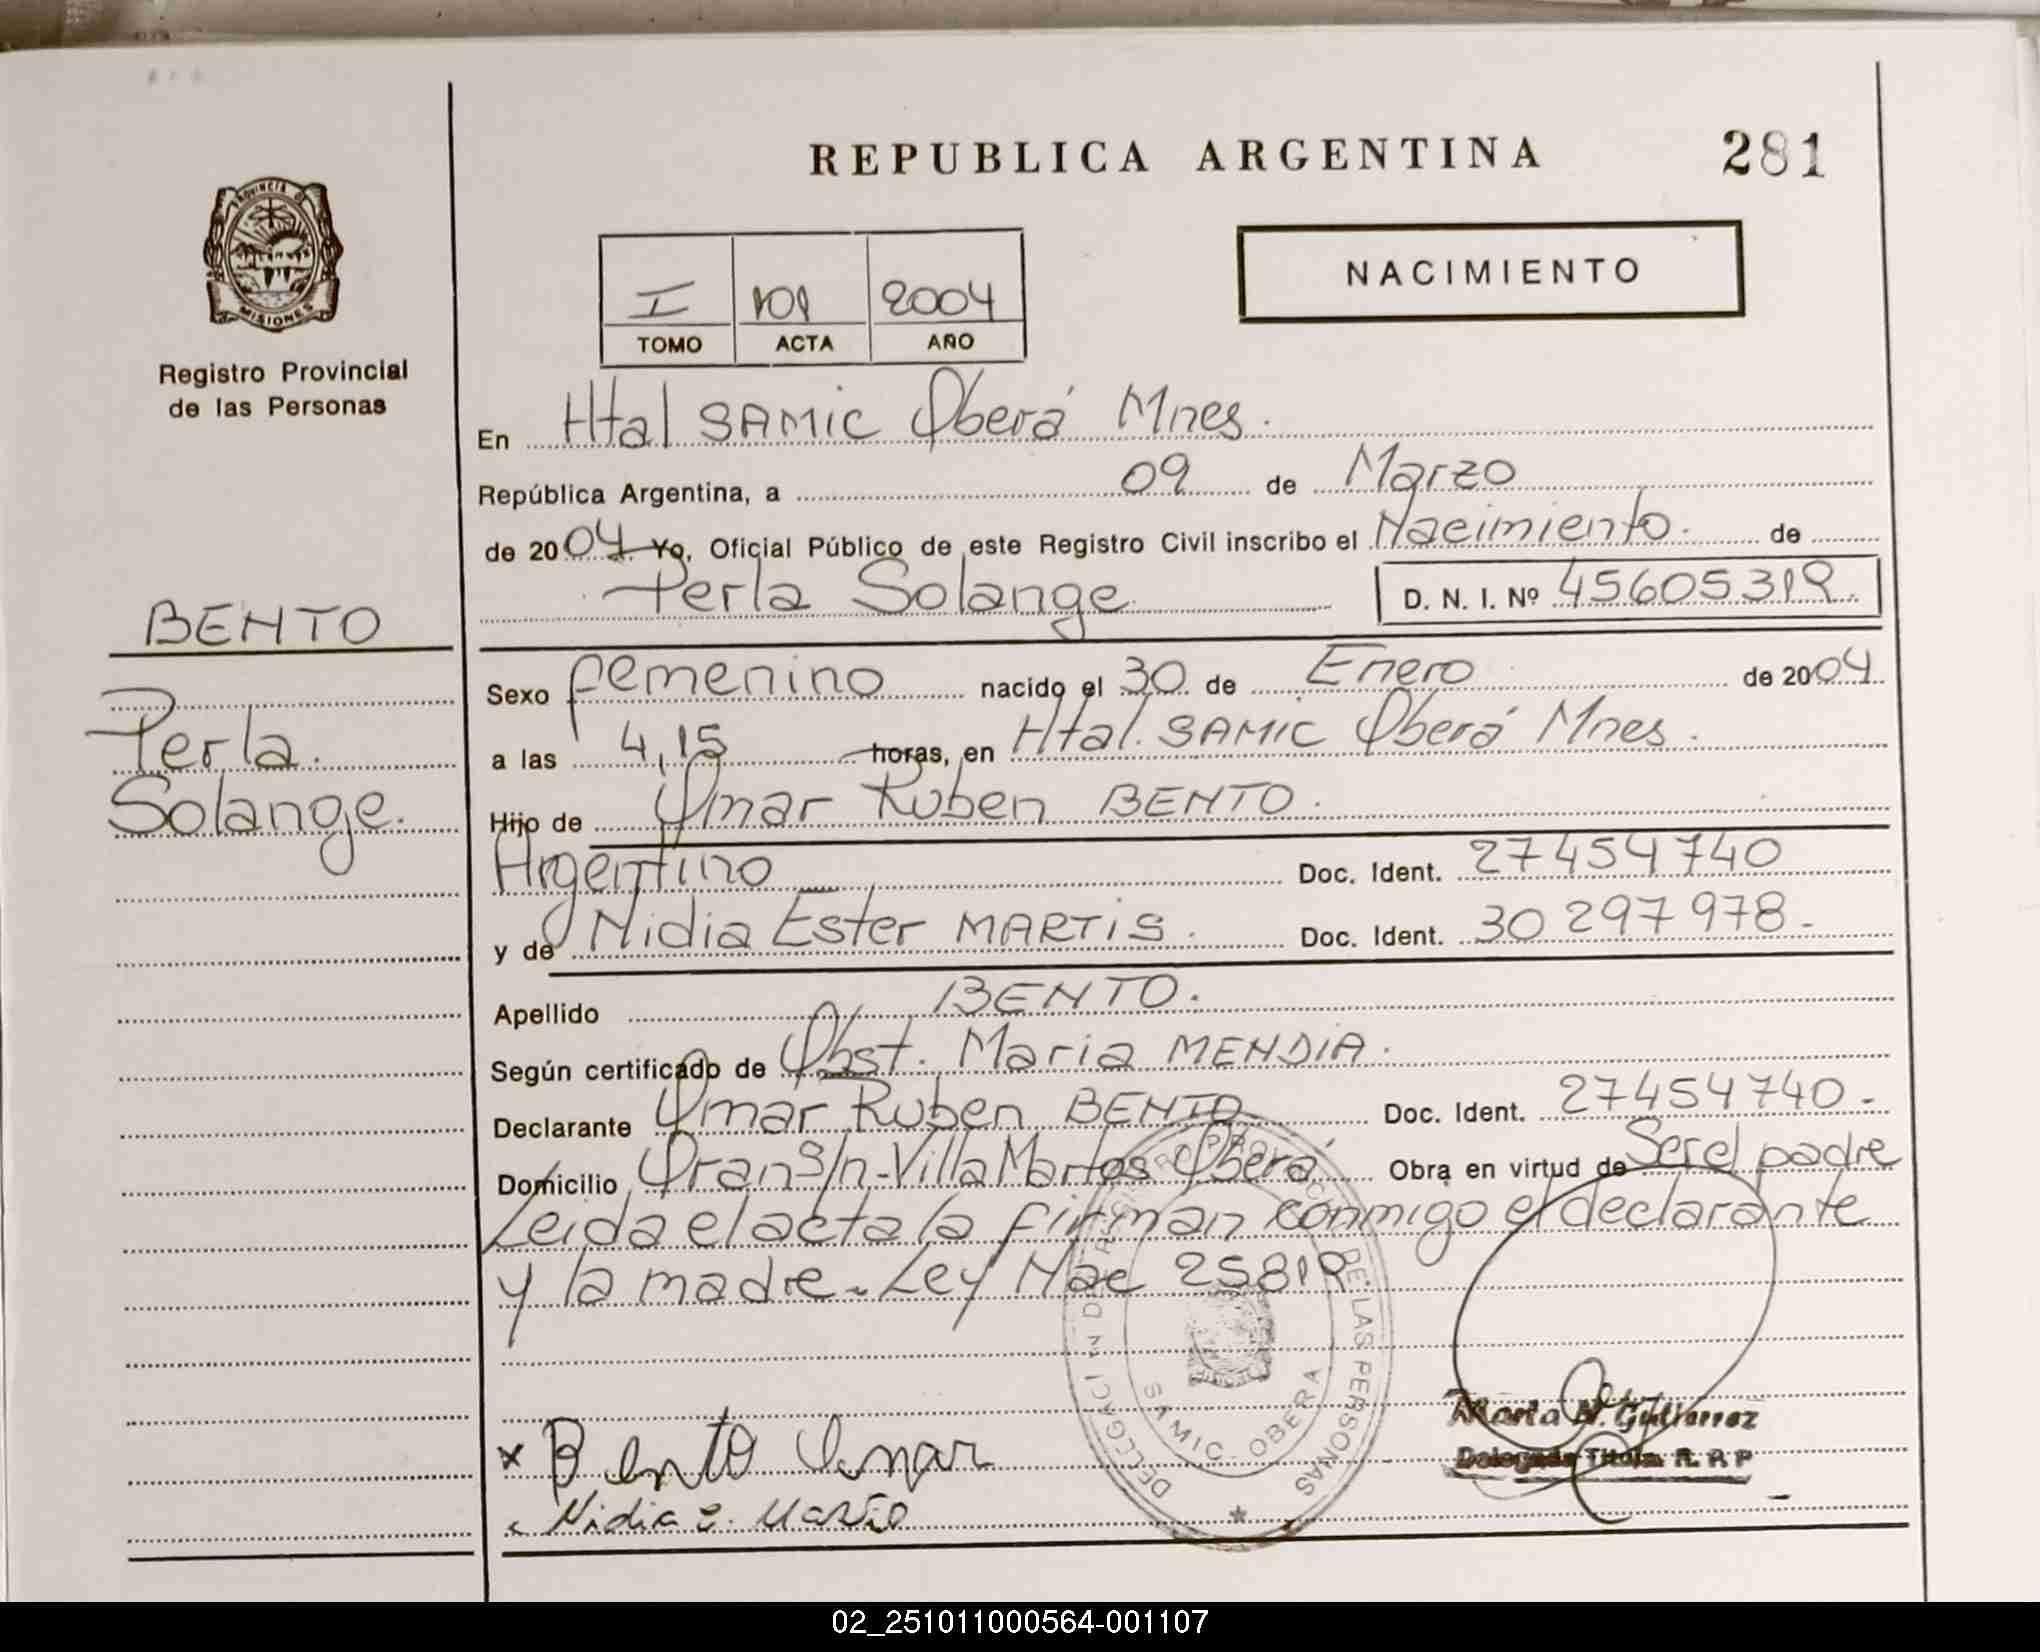 REPUBLICA ARGENTINA
281
PROVINCIA DE
MISIONES
Registro Provincial
de las Personas
NACIMIENTO
I 101 2004
TOMO ACTA AÑO
En Htal SAMIC Oberá Mnes.
República Argentina, a 09 de Marzo
de 2004 Yo, Oficial Público de este Registro Civil inscribo el Nacimiento. de
Perla Solange D. N. I. Nº 45605319.
BENTO
Perla.
Solange.
Sexo femenino nacido el 30 de Enero de 2004
a las 4,15 horas, en Htal. SAMIC Oberá Mnes.
Hijo de Omar Ruben BENTO.
Argentino Doc. Ident. 27454740
y de Nidia Ester MARTIS. Doc. Ident. 30 297 978.-
Apellido BENTO.
Según certificado de Obst. Maria MENDIA.
Declarante Omar Ruben BENTO Doc. Ident. 27454740.-
Domicilio Oran S/n-Villa Martos Oberá Obra en virtud de Ser el padre
Leida el acta la firman conmigo el declarante
y la madre. Ley Nac 25819
DE LAS PERSONAS
SAMIC - OBERA
x Bento Omar
Nidia E. Martis
Maria N. Gutierrez
Delegada Titular R. P. P
02_251011000564-001107